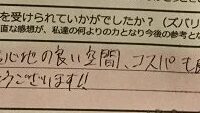 を受けられていかがでしたか？（ズバリ
直な感想が、私達の何よりの力となり今後の参考と
心地の良い空間、コスパも
うございます!!